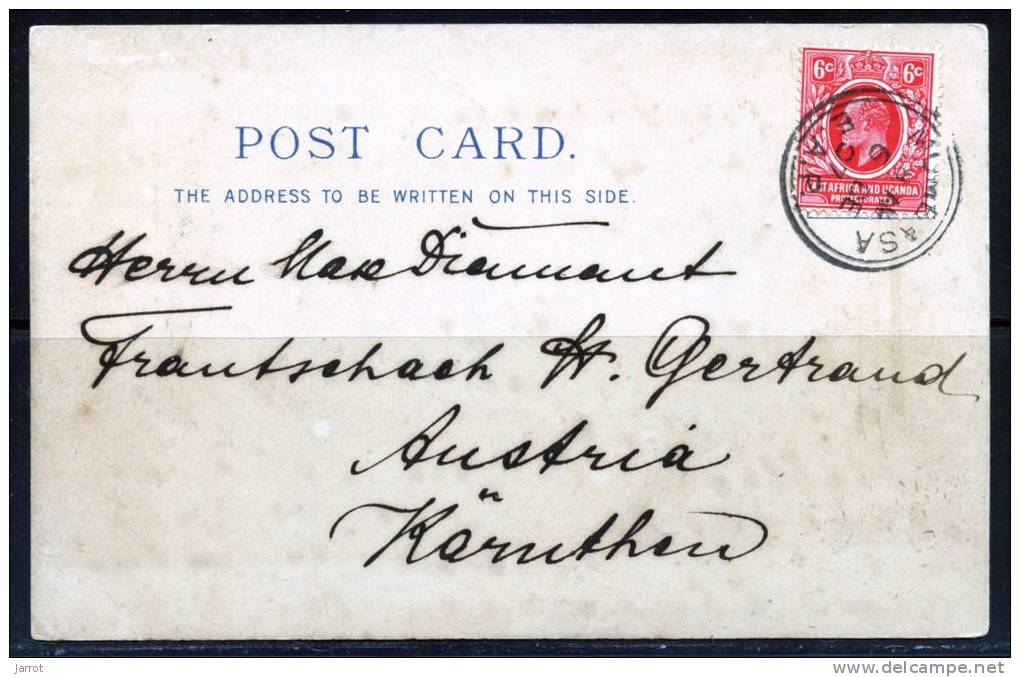 6c 6c
POST CARD.
THE ADDRESS TO BE WRITTEN ON THIS SIDE.
ST AFRICA AND UGANDA
PROTECTORATES
ASA
Herrn Max Diamant
Frantschach St. Gertraud
Austria
Kärnthen
Jarrot
delcampe.net